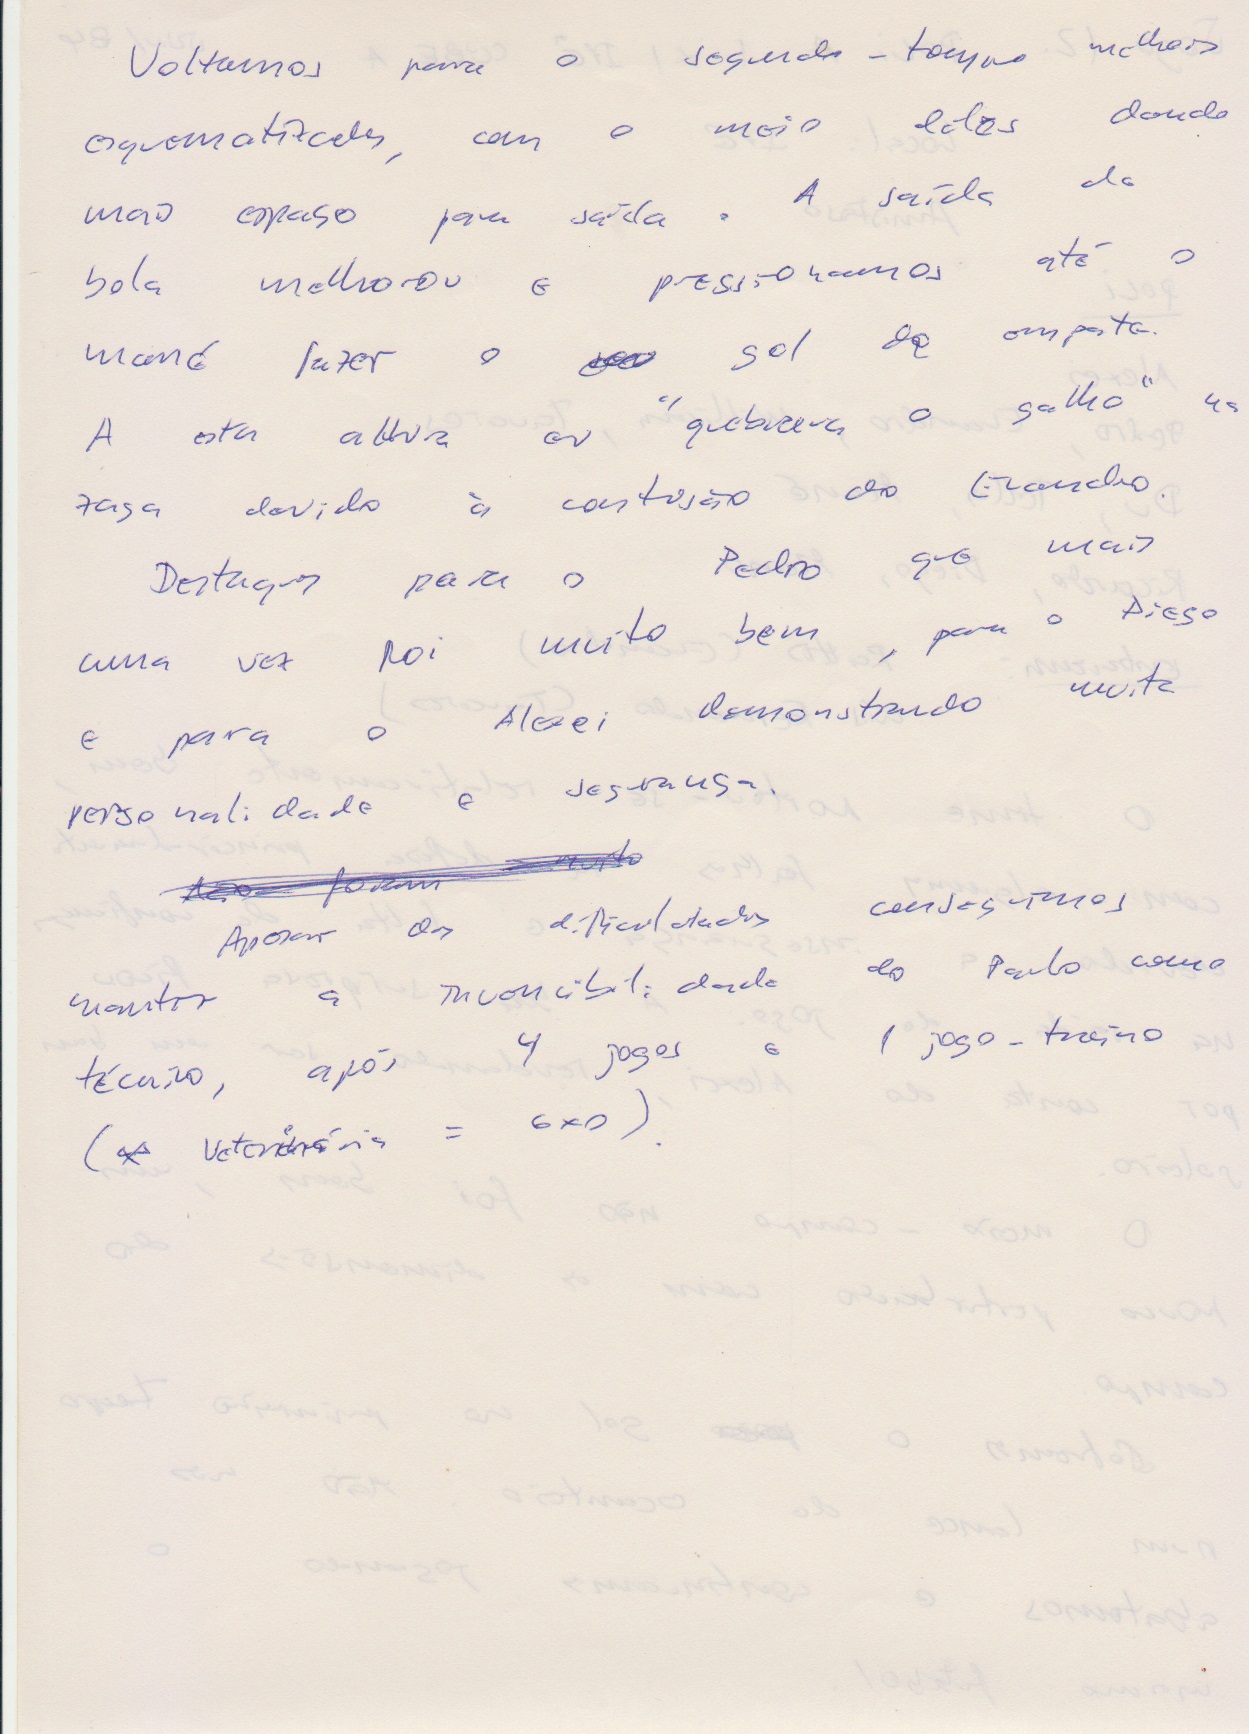 Voltamos para o segundo-tempo melhor
esquematizados, com o meio dando
mais espaço para saída. A saída de
bola melhorou e pressionamos até o
mané fazer o gol de empate.
A esta altura eu "quebrava o galho" na
zaga devido à contusão do Evandro.
Destaques para o Pedro que mais
uma vez foi muito bem, para o Diego
e para o Alexei demonstrando muita
personalidade e segurança.
Apesar das dificuldades conseguimos
manter a invencibilidade do Paulo como
técnico, após 4 jogos e 1 jogo-treino
(Veterinária = 6x0).